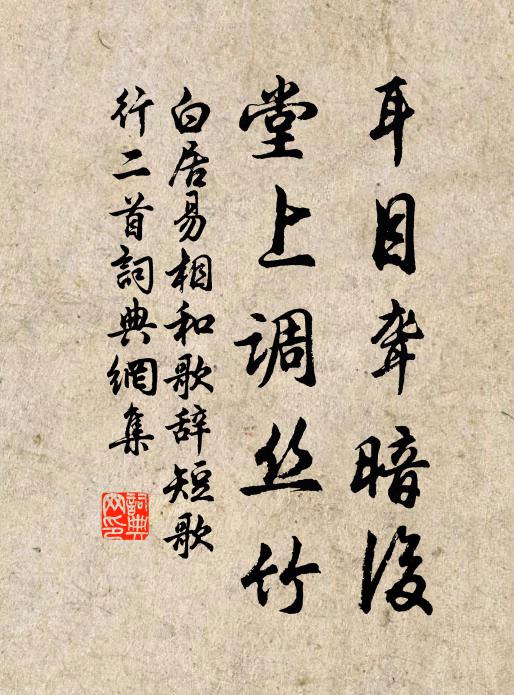 耳目聋暗後
堂上调丝竹
白居易相和歌辞短歌
行二首詞典網集
詞典网印